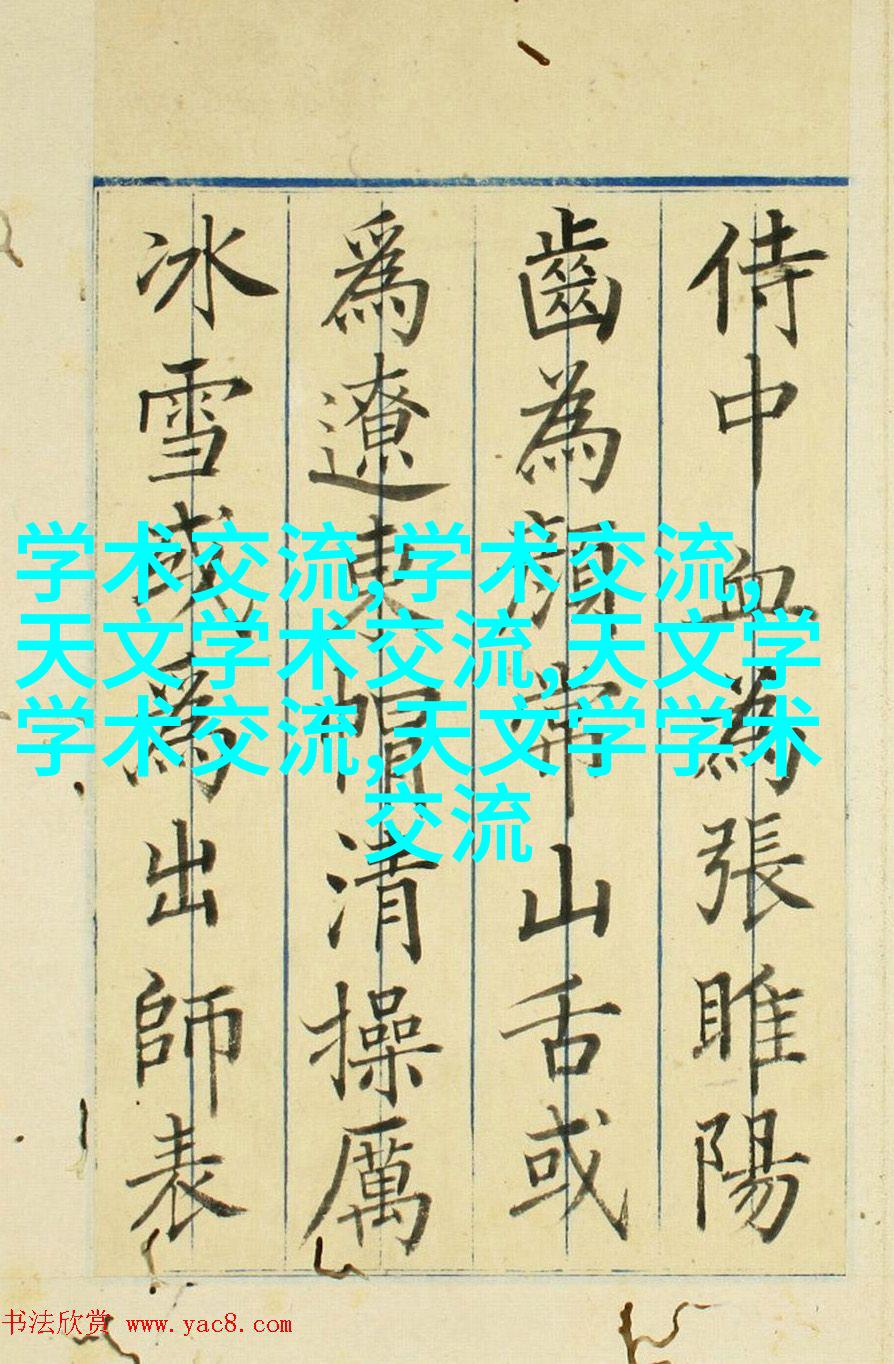 侍中血為張睢陽
齒為顏常山舌或
爲遼東帽清操厲
冰雪或爲出師表
学术交流,学术交流,
天文学术交流,天文学
学术交流,天文学学术
交流
书法欣赏 www.yac8.com